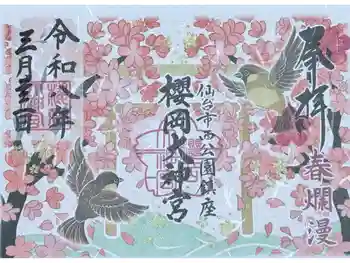 奉拝
春爛漫
仙台市西公園鎮座
櫻岡大神宮
令和八年
三月吉日